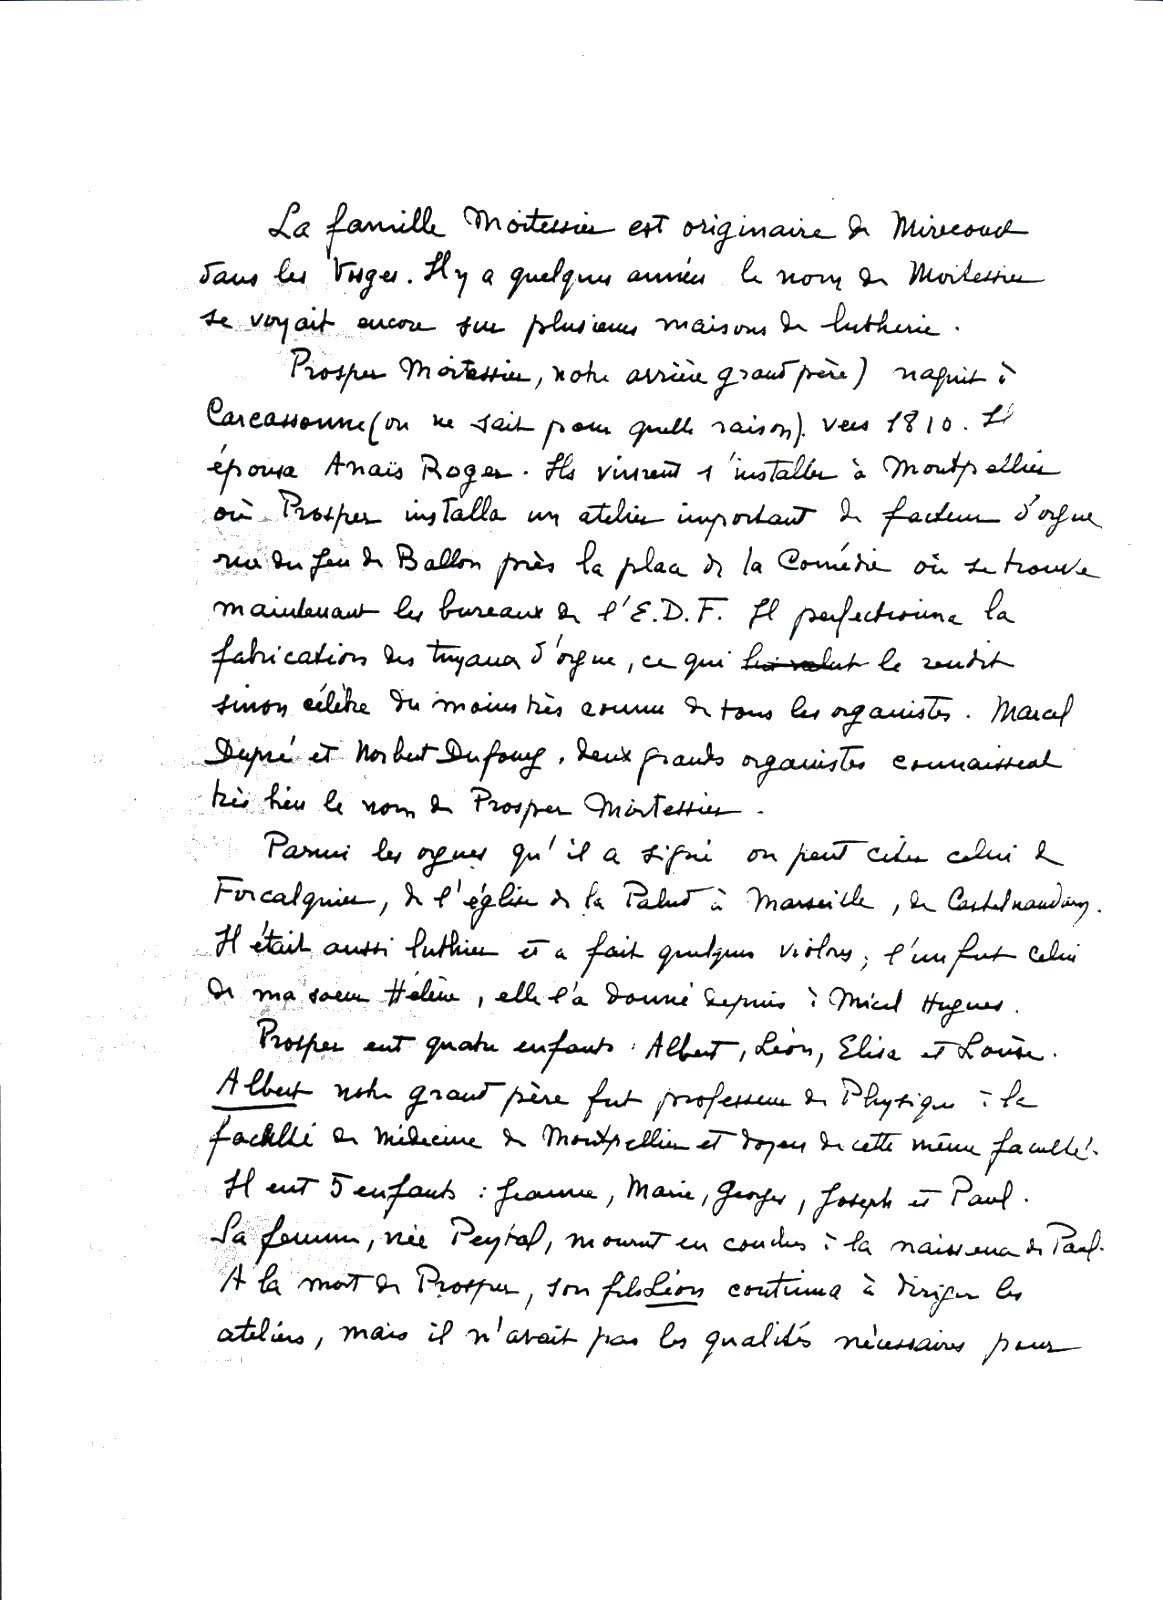 La famille Moitessier est originaire de Mirecourt
dans les Vosges. Il y a quelques années le nom de Moitessier
se voyait encore sur plusieurs maisons de lutherie.
Prosper Moitessier, notre arrière grand père) naquit à
Carcassonne (on ne sait pour quelle raison). vers 1810. Il
épousa Anaïs Roger. Ils vinrent s'installer à Montpellier
où Prosper installa un atelier important de facteur d'orgue
rue du Jeu de Ballon près la place de la Comédie où se trouve
maintenant les bureaux de l'E.D.F. Il perfectionna la
fabrication des tuyaux d'orgue, ce qui lui valut le rendit
sinon célèbre du moins très connu de tous les organistes. Marcel
Dupré et Norbert Dufourq, deux grands organistes connaissent
très bien le nom de Prosper Moitessier.
Parmi les orgues qu'il a signé on peut citer celui de
Forcalquier, de l'église de la Palud à Marseille, de Castelnaudary.
Il était aussi luthier et a fait quelques violons; l'un fut celui
de ma soeur Hélène, elle l'a donné depuis à Micel Hugues.
Prosper eut quatre enfants : Albert, Léon, Elisa et Louise.
Albert notre grand père fut professeur de Physique à la
faculté de médecine de Montpellier et doyen de cette même faculté.
Il eut 5 enfants : Jeanne, Marie, Georges, Joseph et Paul.
Sa femme, née Peytal, mourut en couches à la naissance de Paul.
A la mort de Prosper, son fils Léon continua à diriger les
ateliers, mais il n'avait pas les qualités nécessaires pour